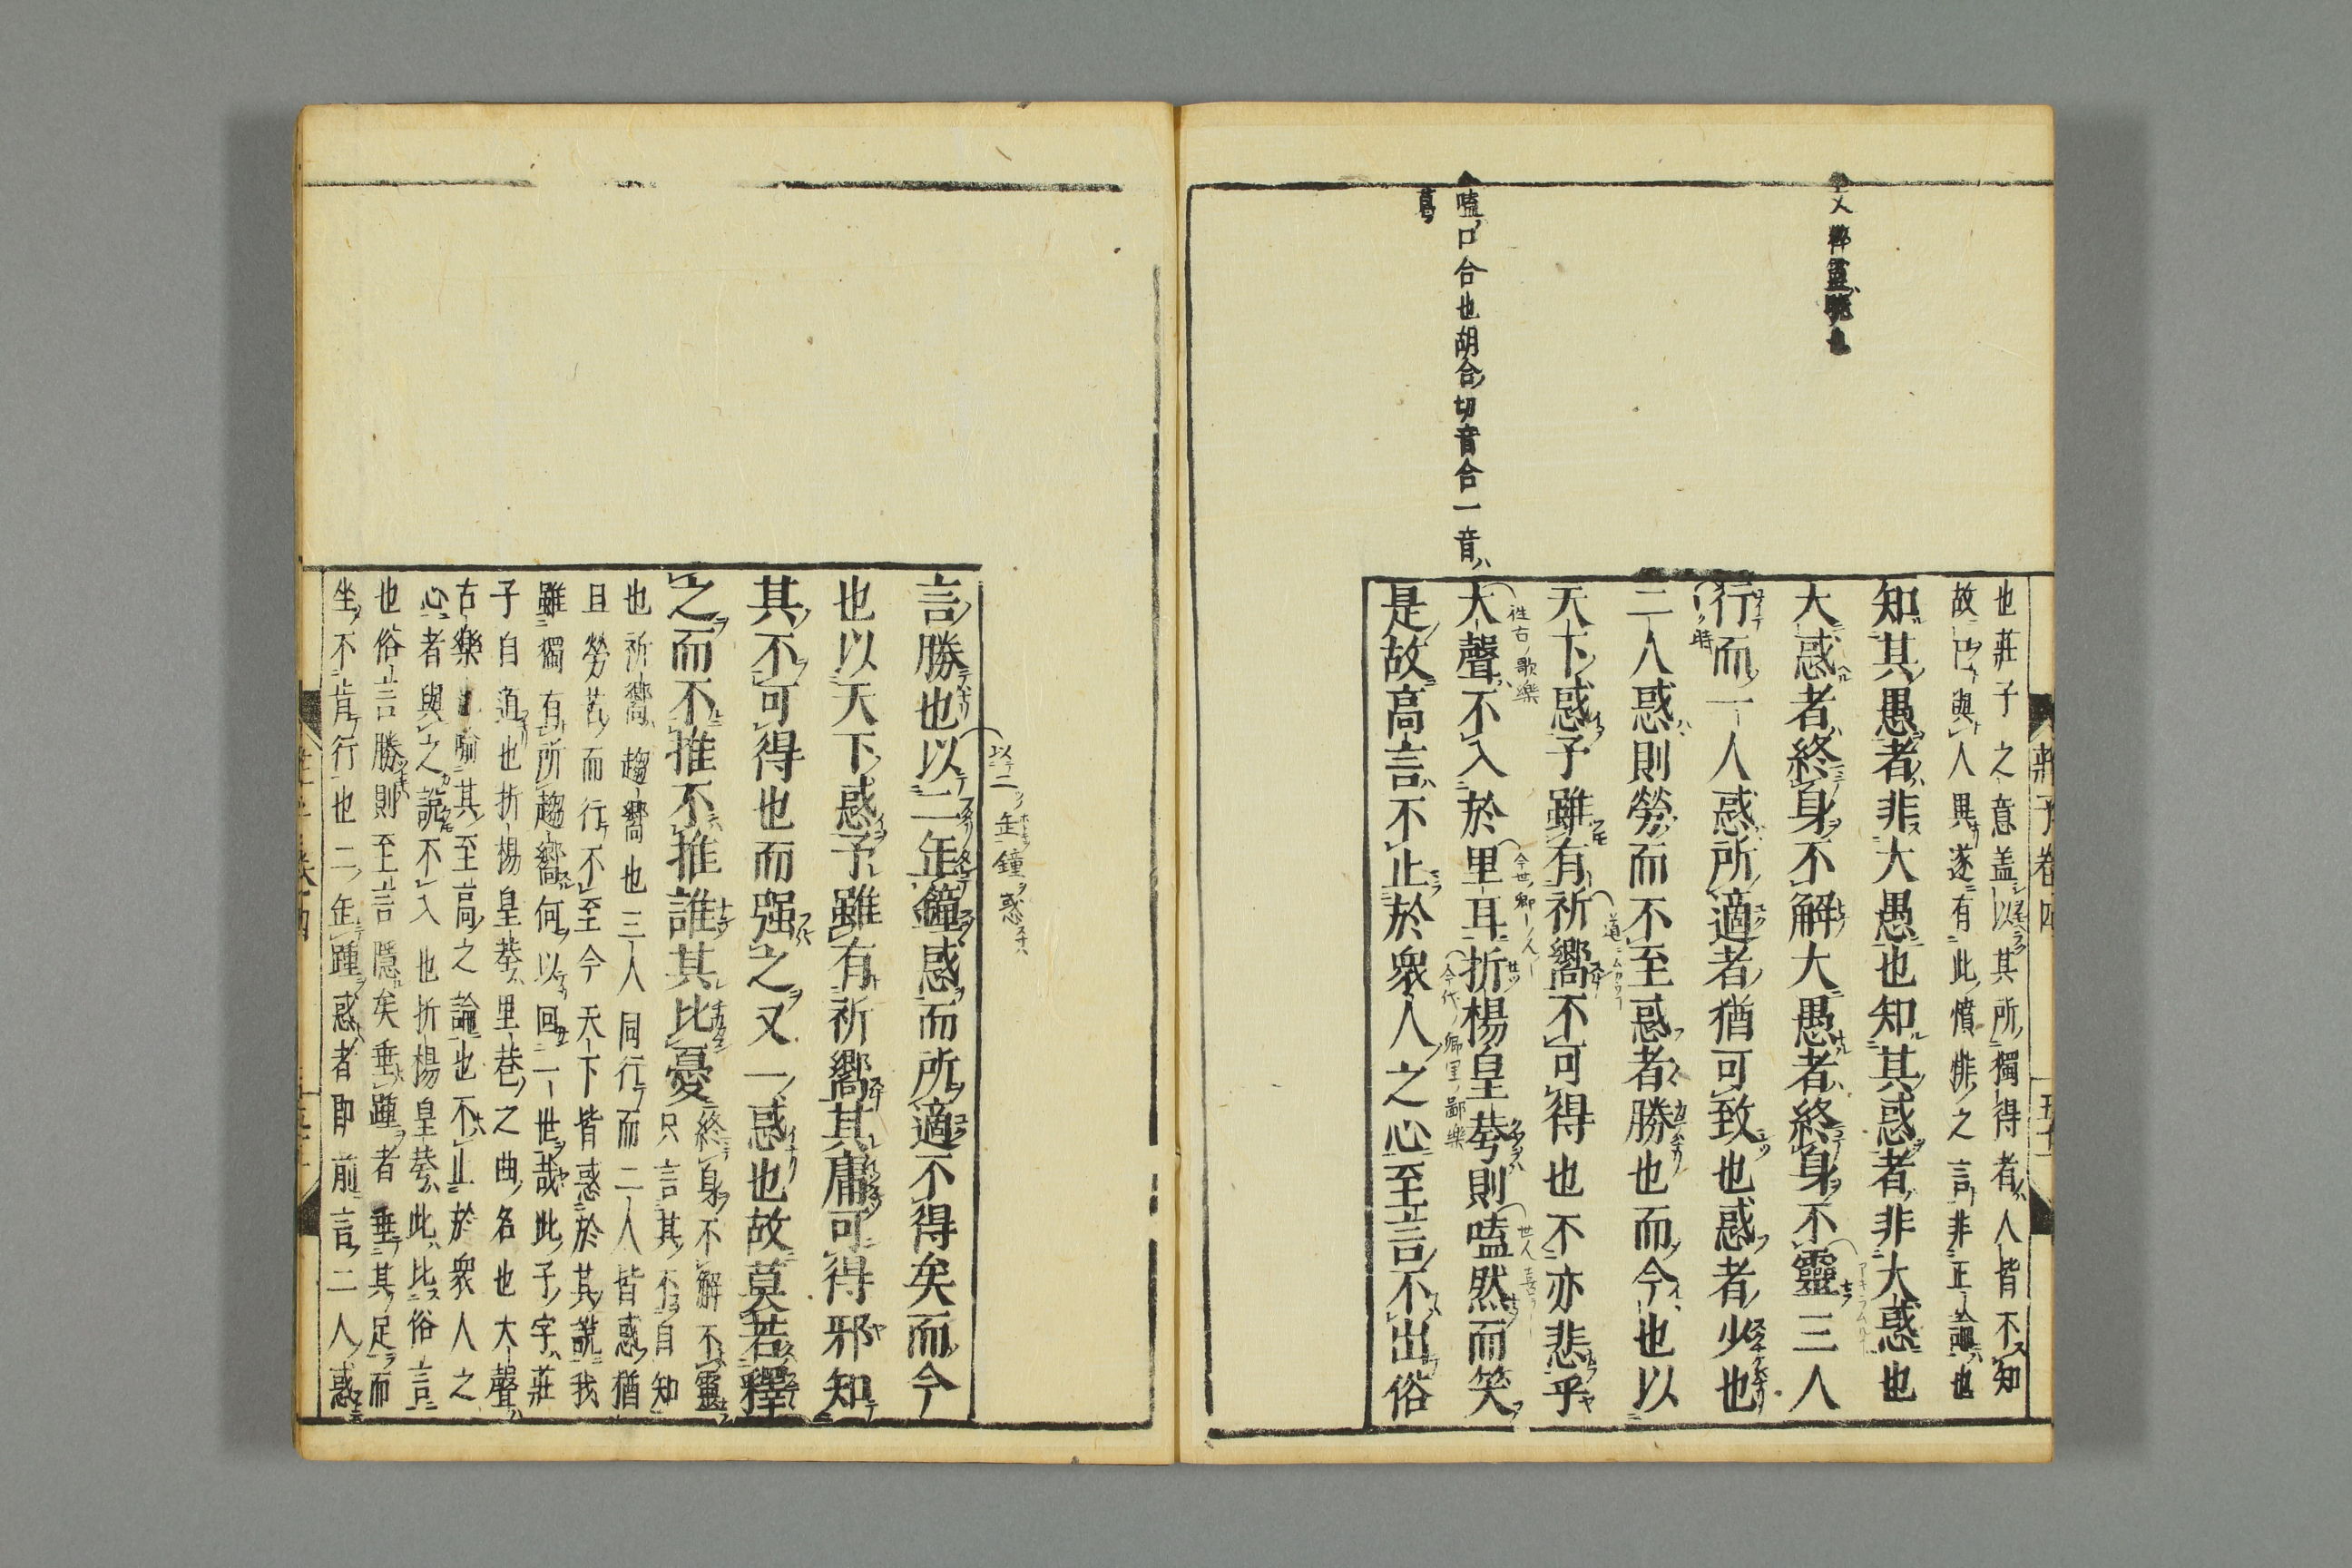 也莊子之意盖以其所獨得者人皆不知
故曰與人異遂有此憤悱之言非正論也
知其愚者非大愚也知其惑者非大惑也
大惑者終身不解大愚者終身不靈三人
行而一人惑所適者猶可致也惑者少也
二人惑則勞而不至惑者勝也而今也以
天下惑予雖有祈嚮不可得也不亦悲乎
大聲不入於里耳折楊皇荂則嗑然而笑
是故高言不止於衆人之心至言不出俗
嗑口合也胡合切音合一音
往古ノ歌樂
言勝也以二缶鐘惑而所適不得矣而今
也以天下惑予雖有祈嚮其庸可得邪知
其不可得也而强之又一惑也故莫若釋
之而不推不推誰其比憂
終身不解不靈
只言其不自知
也祈嚮趨嚮也三人同行而二人皆惑猶
且勞苦而行不至今天下皆惑於其說我
雖獨有所趨嚮何以回一世哉此予字莊
子自道也折楊皇荂里巷之曲名也大聲
古樂喻其至高之論也不止於衆人之
心者與之說不入也折楊皇荂此比俗言
也俗言勝則至言隱矣垂踵者垂其足而
坐不肯行也二缶踵惑者即前言二人惑